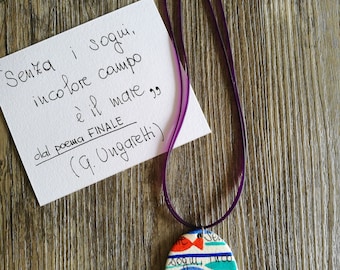 "Senza i sogni,
incolore campo
è il mare„
dal poema FINALE
(G. Ungaretti)
Sogni, inco